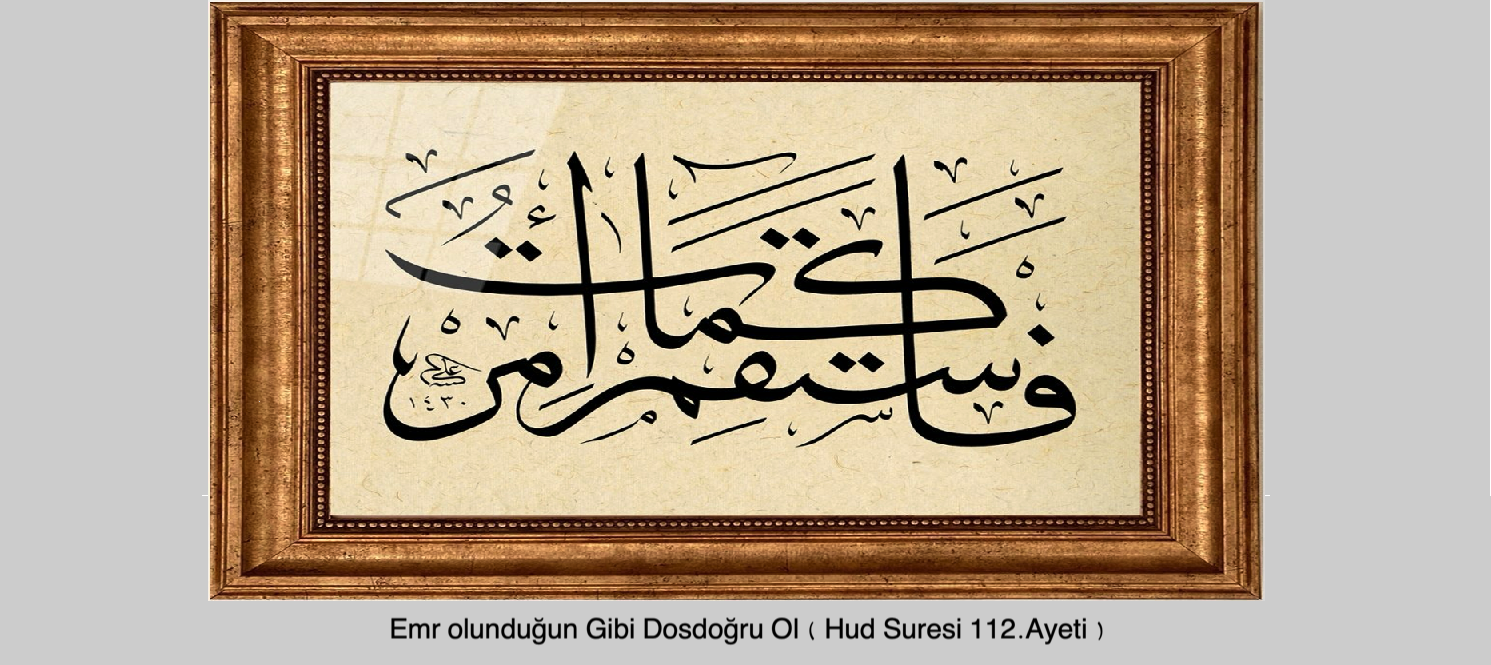 فاستقم كما أمرت
علي
١٤٣٠
Emr olunduğun Gibi Dosdoğru Ol ( Hud Suresi 112.Ayeti )